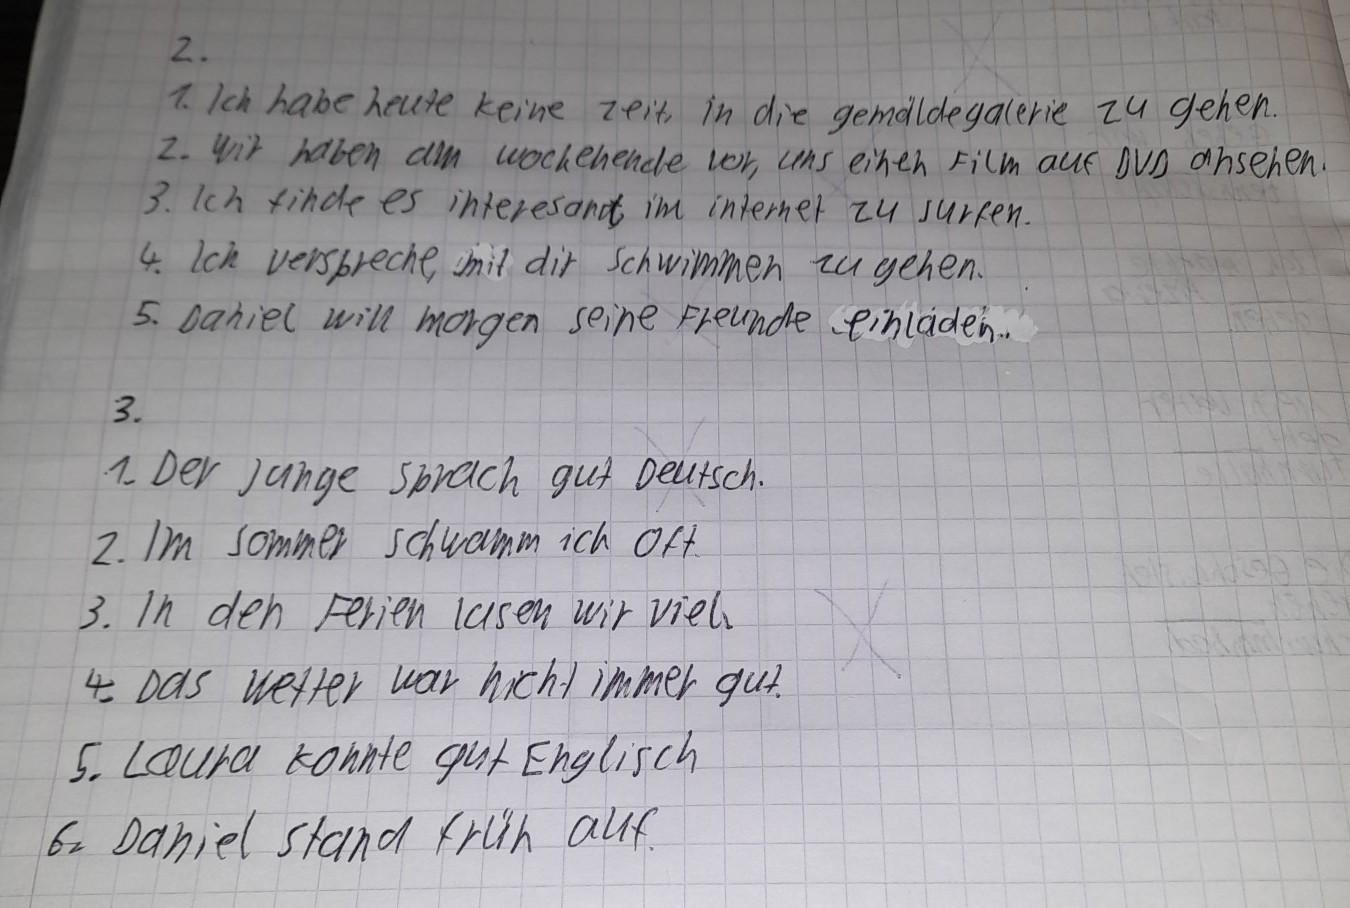 2.
1. Ich habe heute keine zeit, in die gemäldegalerie zu gehen.
2. Wir haben am wochenende vor, uns einen Film auf DVD ansehen.
3. Ich finde es interesant, im internet zu surfen.
4. Ich verspreche, mit dir schwimmen zu gehen.
5. Daniel will morgen seine Freunde einladen.
3.
1. Der junge sprach gut Deutsch.
2. Im sommer schwamm ich oft
3. In den Ferien lasen wir viel.
4. Das wetter war nicht immer gut.
5. Laura konnte gut Englisch
6. Daniel stand früh auf.